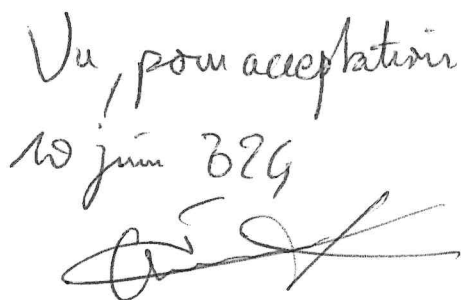 Vu, pour acceptation
10 juin 2024